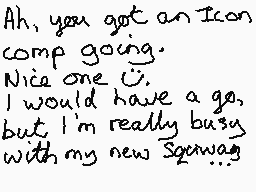 Ah, you got an Icon
comp going.
Nice one Ü.
I would have a go,
but I'm really busy
with my new Squwag
...